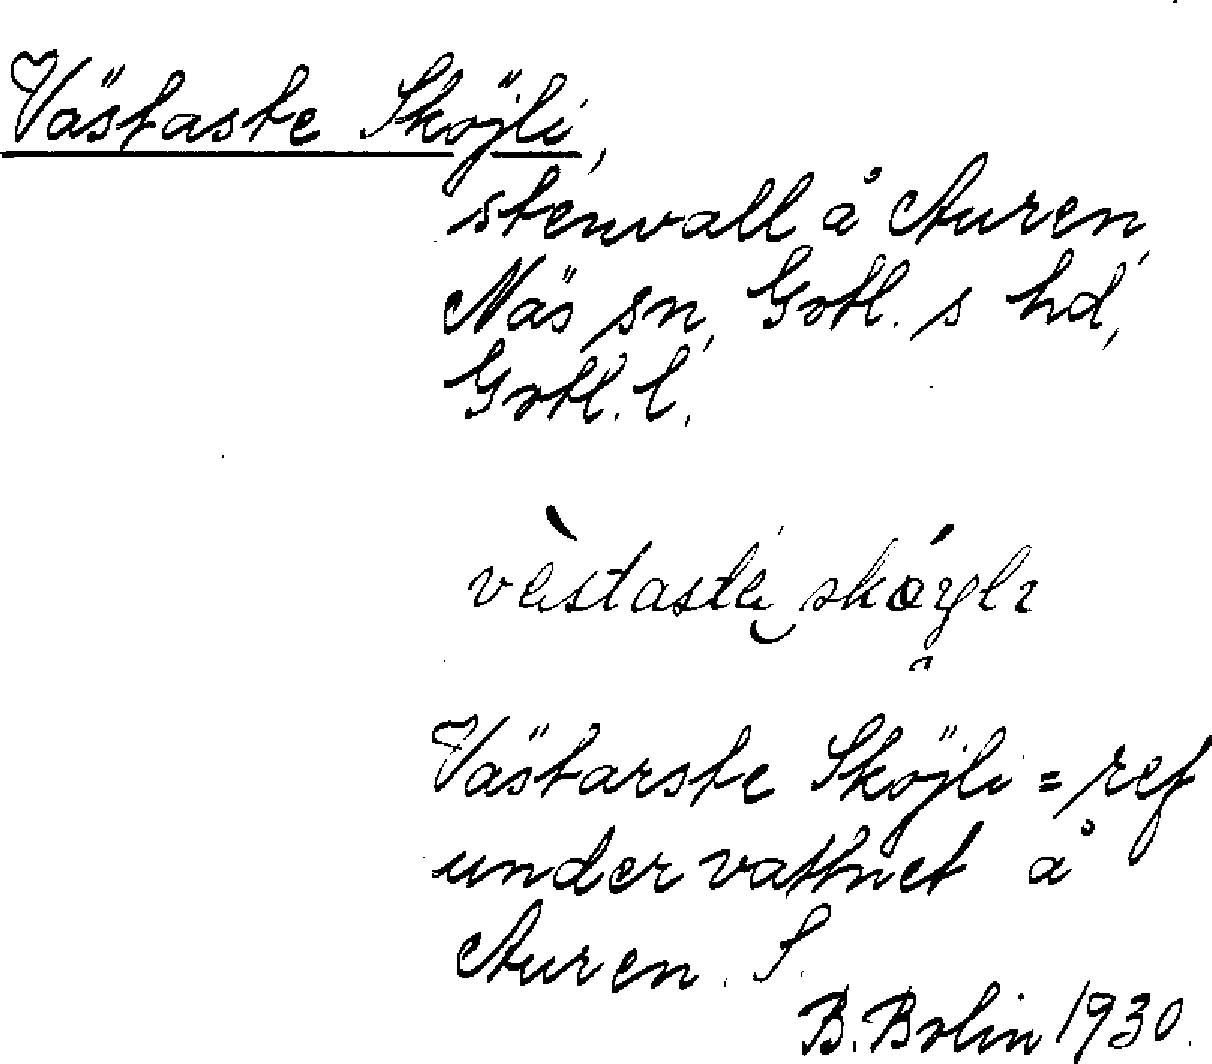 Västaste Sköjli,
stenvall å Auren,
Näs sn, Gotl. s hd,
Gotl. l.
västastä sköyli
Västarste Sköjli = ref
under vattnet å
Auren. S.
B. Bolin 1930.